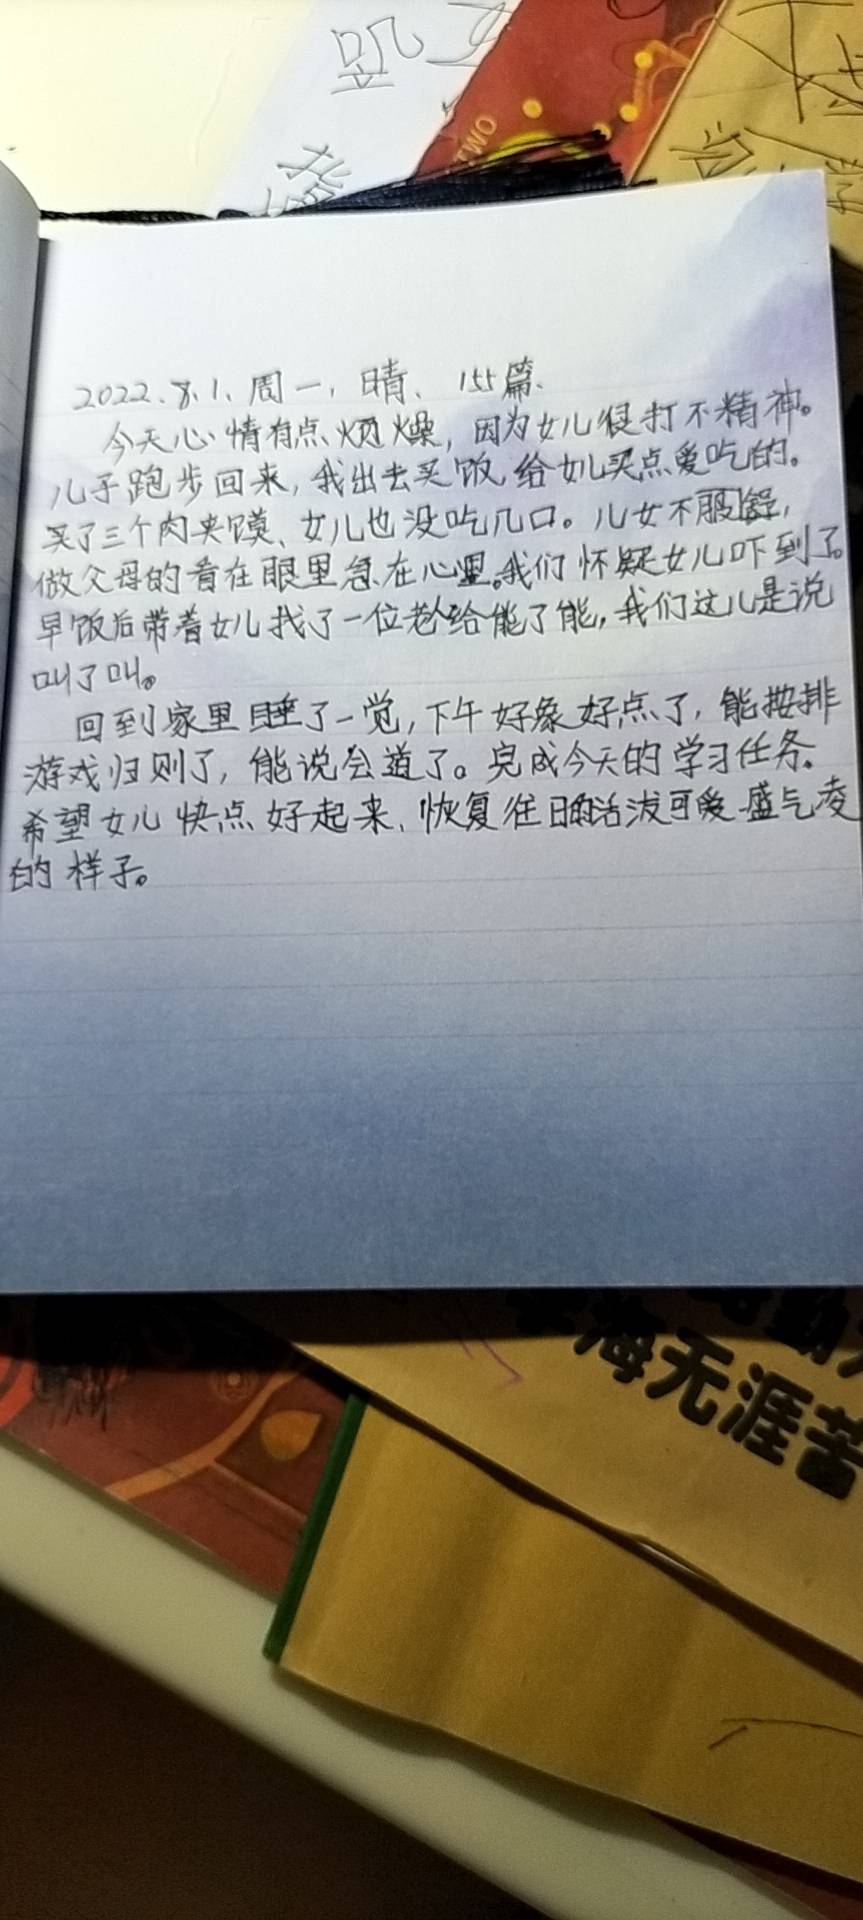 TWO
2022.8.1、周一,晴、155篇、
今天心情有点烦燥,因为女儿很打不精神。
儿子跑步回来,我出去买饭,给女儿买点爱吃的。
买了三个肉夹馍、女儿也没吃几口。儿女不服舒,
做父母的看在眼里急在心里。我们怀疑女儿吓到了。
早饭后带着女儿找了一位老人给能了能,我们这儿是说
叫了叫。
回到家里睡了一觉,下午好象好点了,能按排
游戏归则了,能说会道了。完成今天的学习任务。
希望女儿快点好起来,恢复往日的活泼可爱盛气凌
的样子。
海无涯苦